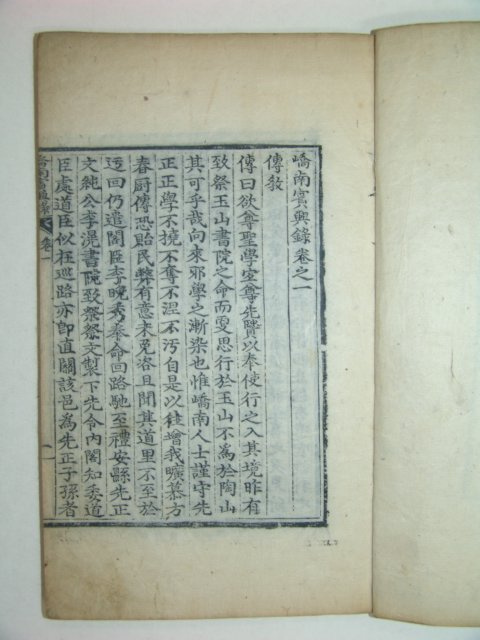 嶠南賓興錄卷之一
傳敎
傳曰欲尊聖學宜尊先賢以奉使行之入其境昨有
致祭玉山書院之命而雯思行於玉山不爲於陶山
其可乎哉向來邪學之漸染也惟嶠南人士謹守先
正正學不撓不奪不涅不汚自是以往增我曠慕方
春厨傳恐貽民弊有意未免咎且聞其道里不至於
迃回仍遣閣臣李晩秀奉命回路馳至禮安縣先正
文純公李滉書院致祭祭文製下先令內閣知委道
臣處道臣似在巡路亦卽直關該邑爲先正子孫者
嶠南賓興錄
卷一
一